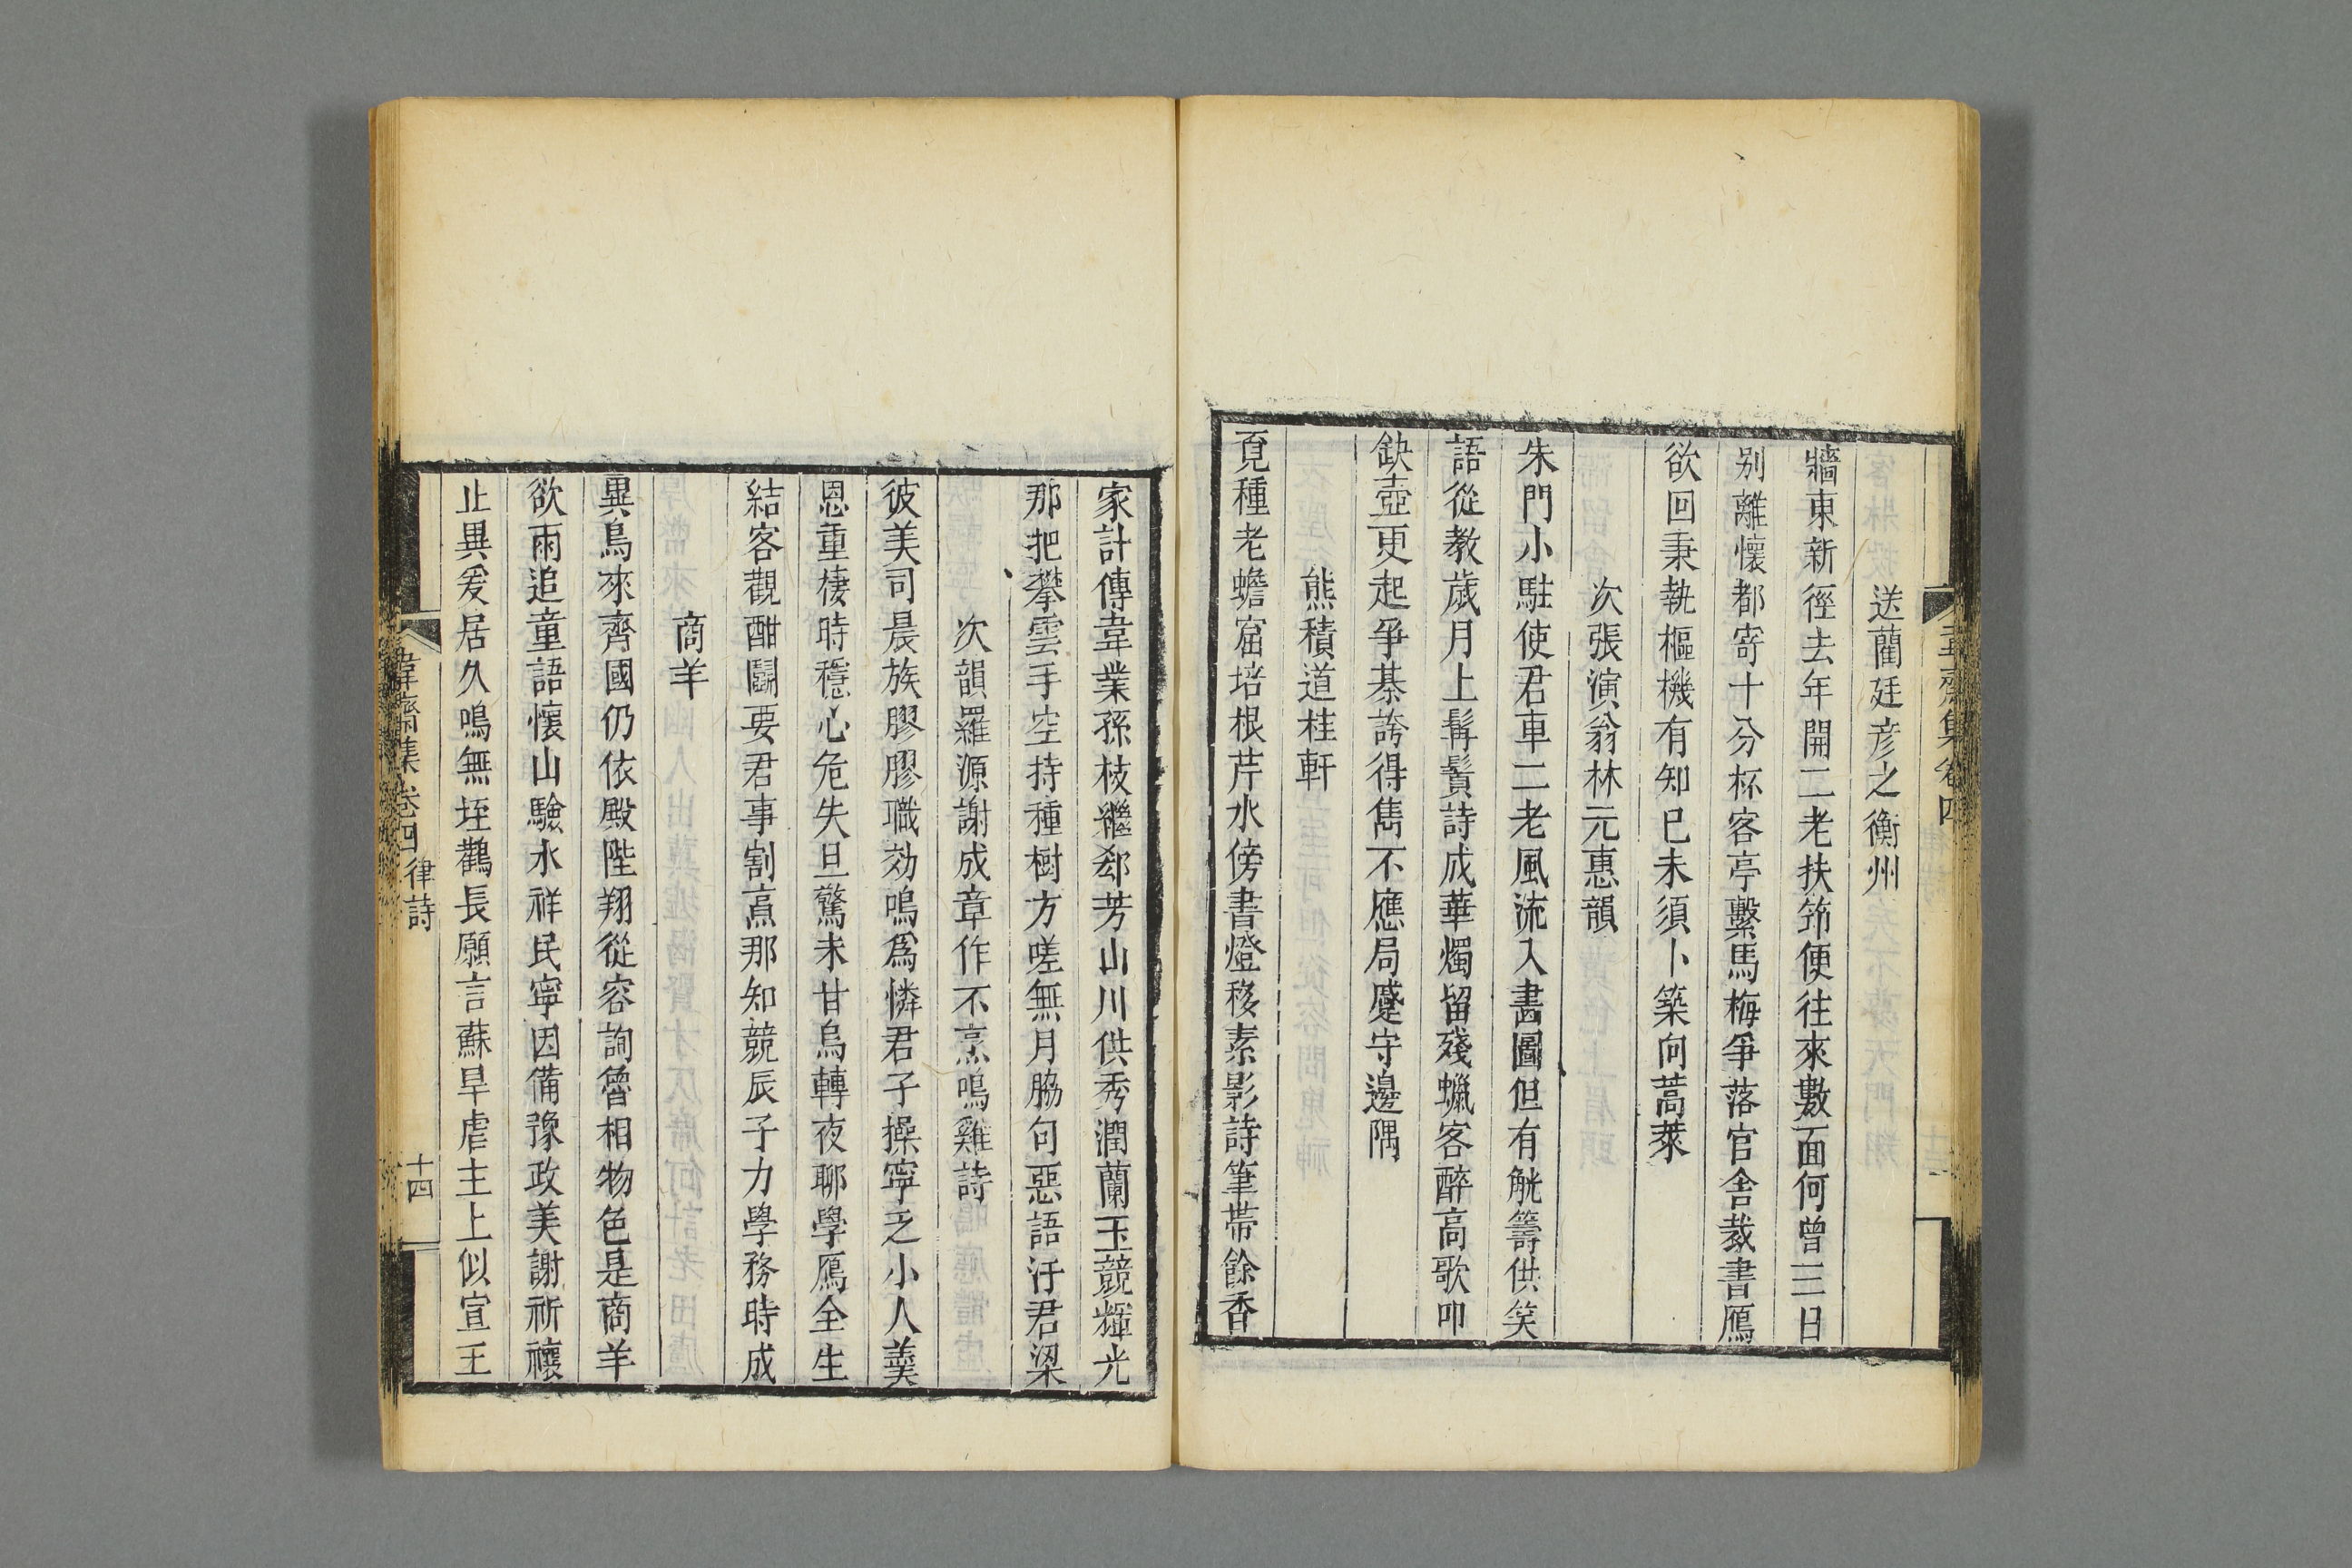 韋齋集卷四
送藺廷彦之衡州
牆東新徑去年開二老扶筇便往來數面何曾三日
别離懷都寄十分杯客亭繫馬梅爭落官舍裁書鴈
欲回秉執樞機有知已未須卜築向蒿萊
次張演翁林元惠韻
朱門小駐使君車二老風流入畵圖但有觥籌供笑
語從教歲月上髯鬚詩成華燭留殘蠟客醉高歌叩
鈌壺更起爭棊誇得雋不應局蹙守邊隅
熊積道桂軒
覓種老蟾窟培根芹水傍書燈移素影詩筆帯餘香
家計傳韋業孫枝繼郄芳山川供秀潤蘭玉競輝光
那把攀雲手空持種樹方嗟無月脇句惡語汙君梁
次韻羅源謝成章作不烹鳴雞詩
彼美司晨族膠膠職効鳴爲憐君子操寧乏小人羹
恩重棲時穩心危失旦驚未甘烏轉夜聊學鴈全生
結客觀酣鬭要君事割烹那知競辰子力學務時成
商羊
異鳥來齊國仍依殿陛翔從容詢魯相物色是商羊
欲雨追童語懷山驗水祥民寧因備豫政美謝祈禳
止異爰居久鳴無垤鸛長願言蘇旱虐主上似宣王
韋齋集卷四 律詩 十四